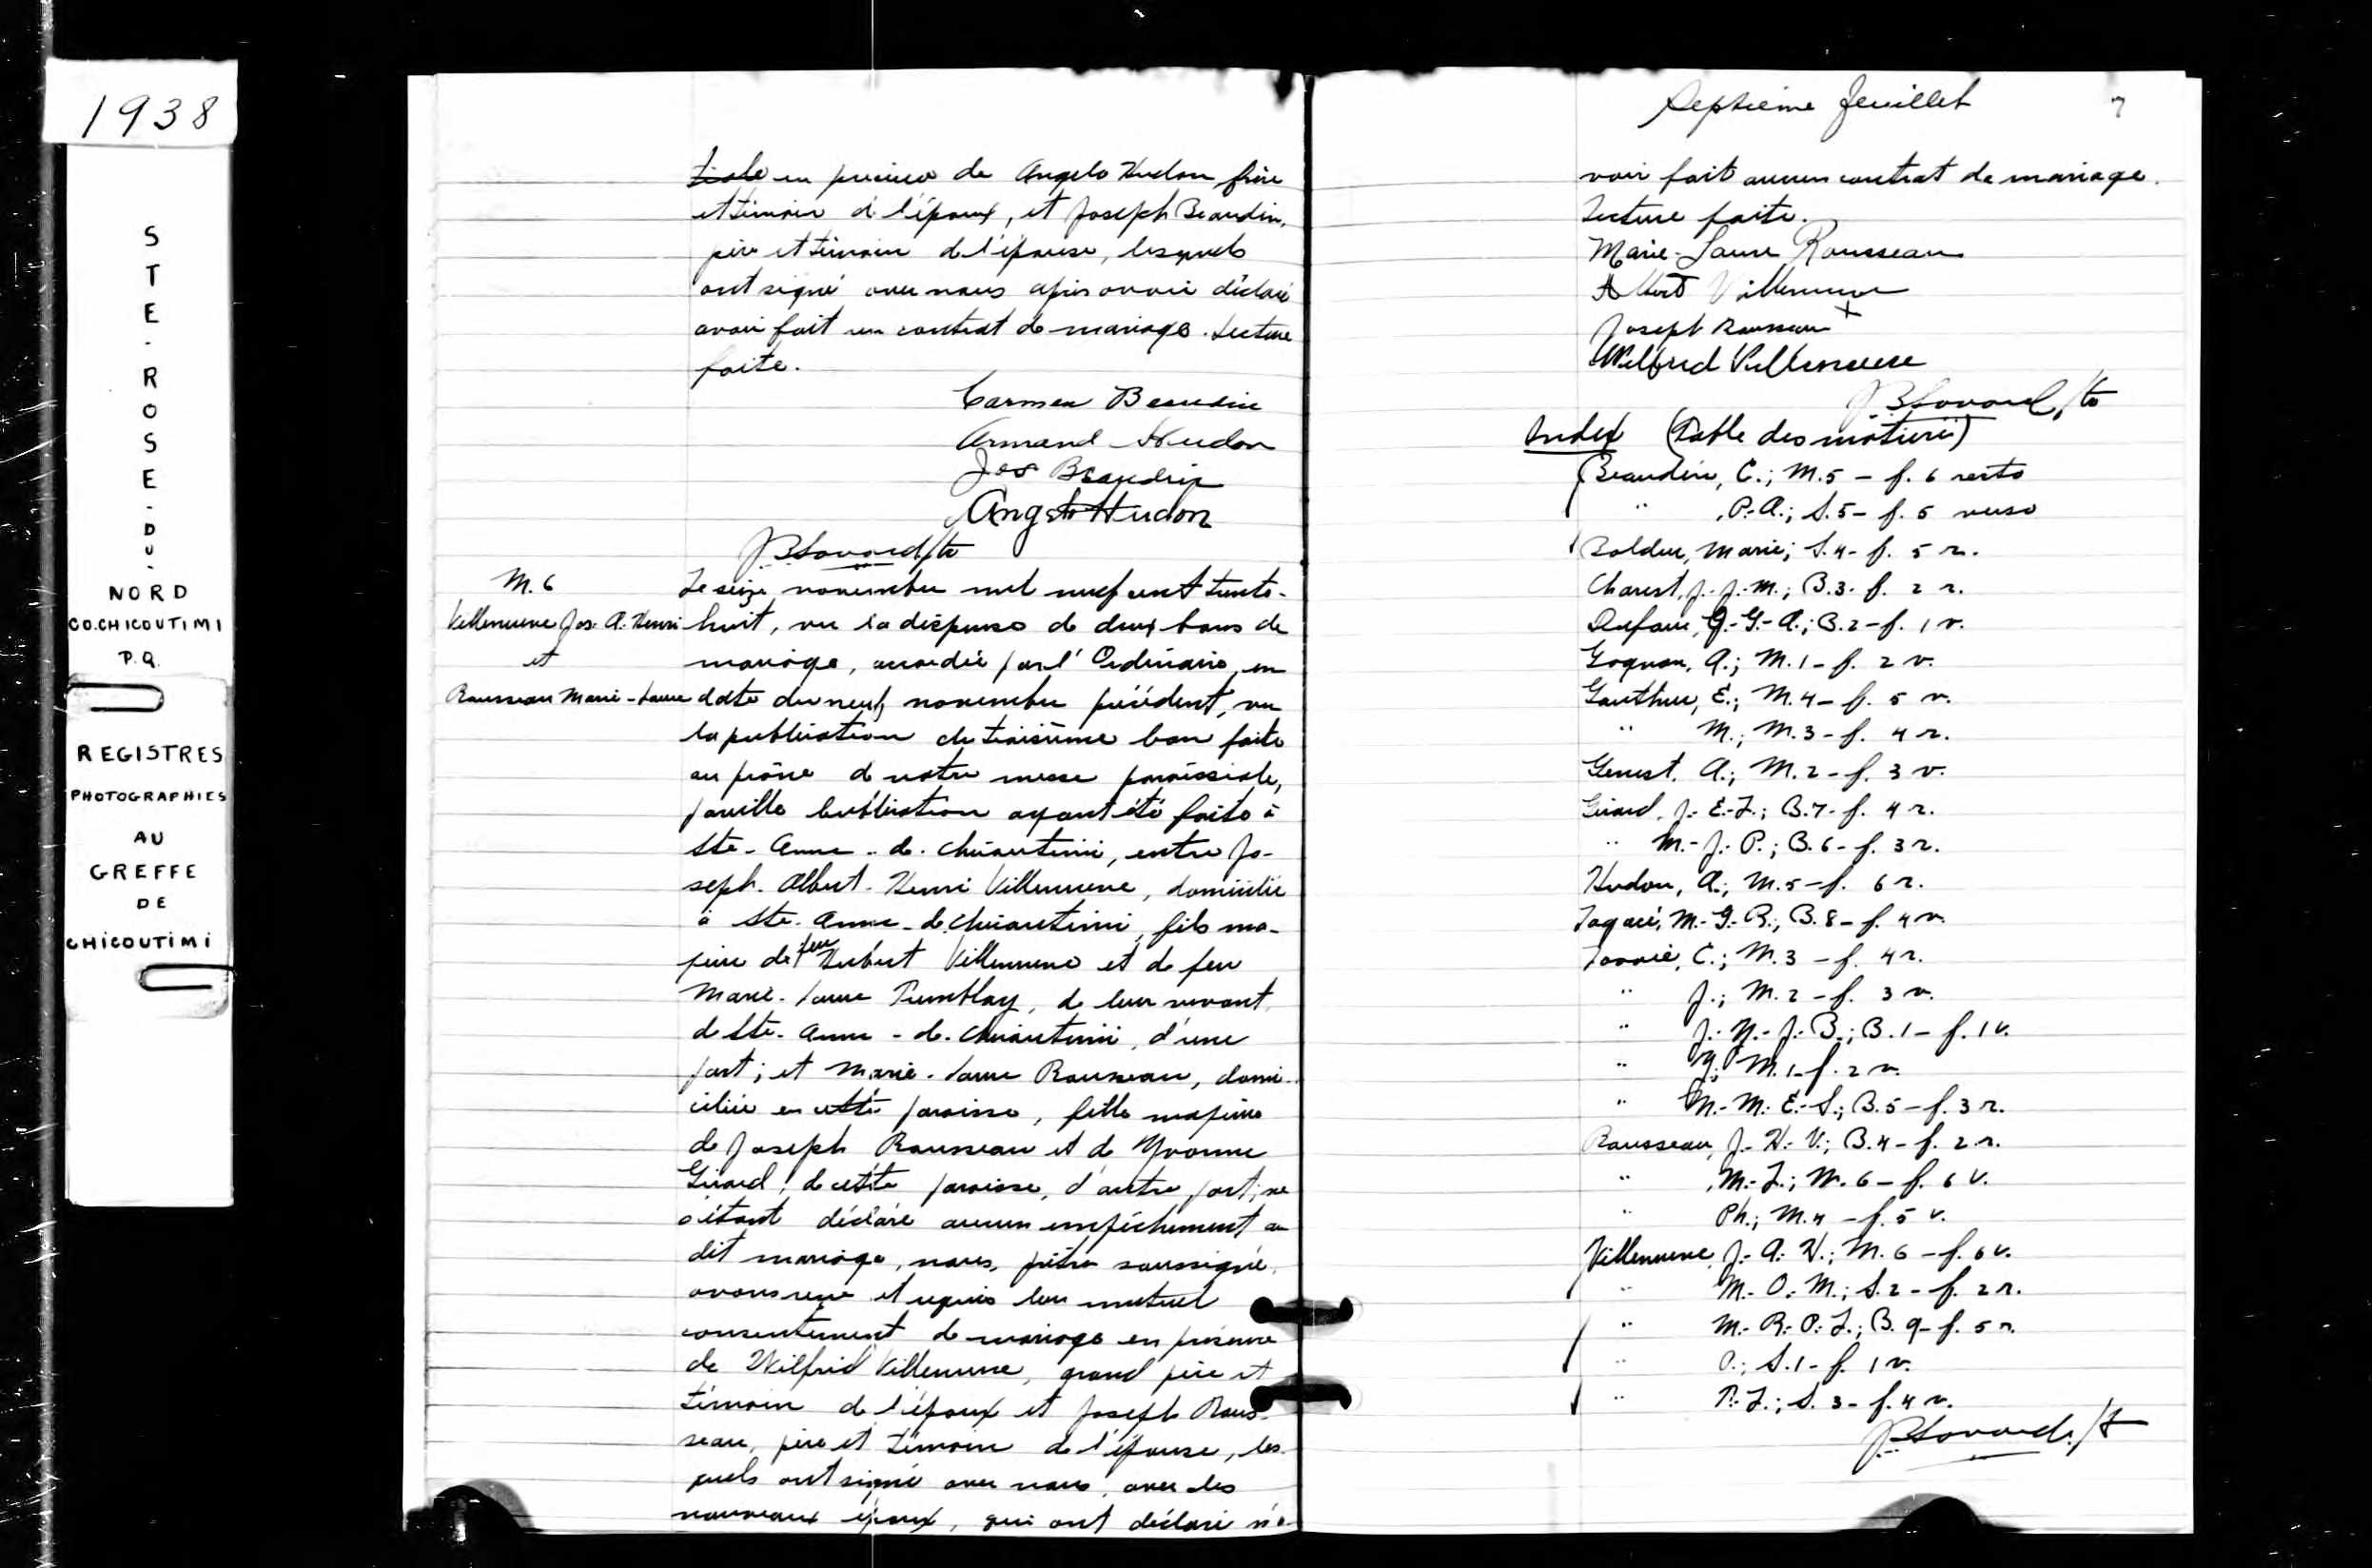 1938
STE-ROSE-DU-
NORD
CO.CHICOUTIMI
P.Q.
REGISTRES
PHOTOGRAPHIES
AU
GREFFE
DE
CHICOUTIMI
en présence de Angelo Hudon frère
et témoin de l'époux, et Joseph Beaudin,
père et témoin de l'épouse, lesquels
ont signé avec nous après avoir déclaré
avoir fait un contrat de mariage. Lecture
faite.
Carmen Beaudin
Armand Hudon
Jos Beaudin
Angelo Hudon
M. 6
Villeneuve Jos. A. Henri
et
Rousseau Marie-Laure
Le seize novembre mil neuf cent trente-
huit, vu la dispense de deux bans de
mariage, accordée par l'Ordinaire, en
date du neuf novembre précédent, vu
la publication du troisième ban faite
au prône de notre messe paroissiale,
pareille publication ayant été faite à
Ste-Anne-de-Chicoutimi, entre Jo-
seph-Albert-Henri Villeneuve, domicilié
à Ste-Anne-de-Chicoutimi, fils ma-
jeur de feu Hubert Villeneuve et de feu
Marie-Laure Tremblay, de leur vivant
de Ste-Anne-de-Chicoutimi, d'une
part; et Marie-Laure Rousseau, domi-
ciliée en cette paroisse, fille majeure
de Joseph Rousseau et de Yvonne
Girard, de cette paroisse, d'autre part; ne
s'étant déclaré aucun empêchement au
dit mariage, nous, prêtre soussigné,
avons reçu et requis leur mutuel
consentement de mariage en présence
de Wilfrid Villeneuve, grand père et
témoin de l'époux et Joseph Rous-
seau, père et témoin de l'épouse, les-
quels ont signé avec nous, avec les
nouveaux époux, qui ont déclaré n'a-
Septième feuillet 7
voir fait aucun contrat de mariage.
Lecture faite.
Marie-Laure Rousseau
Albert Villeneuve
Joseph Rousseau X
Wilfrid Villeneuve
Index (Table des matières)
Beaudin, C.; M.5 - f. 6 recto
" , P.-A.; S.5 - f. 5 verso
Bolduc, Marie; S.4 - f. 5 r.
Charest, J.-J.-M.; B.3 - f. 2 r.
Dufour, G.-G.-A.; B.2 - f. 1 v.
Gagnon, A.; M.1 - f. 2 v.
Gauthier, E.; M.4 - f. 5 v.
" M.; M.3 - f. 4 r.
Genest, A.; M.2 - f. 3 v.
Girard, J.-E.-L.; B.7 - f. 4 r.
" M.-J.-P.; B.6 - f. 3 r.
Hudon, A.; M.5 - f. 6 r.
Lagacé, M.-G.-R.; B.8 - f. 4 v.
Lavoie, C.; M.3 - f. 4 r.
" J.; M.2 - f. 3 v.
" J.-N.-J.-B.; B.1 - f. 1 v.
" M.1 - f. 2 v.
" M.-M.-E.-S.; B.5 - f. 3 r.
Rousseau, J.-H.-V.; B.4 - f. 2 r.
" , M.-L.; M.6 - f. 6 v.
" Ph.; M.4 - f. 5 v.
Villeneuve, J.-A.-H.; M.6 - f. 6 v.
" M.-O.-M.; S.2 - f. 2 r.
" M.-R.-O.-L.; B.9 - f. 5 r.
" O.; S.1 - f. 1 v.
" P.-L.; S.3 - f. 4 v.